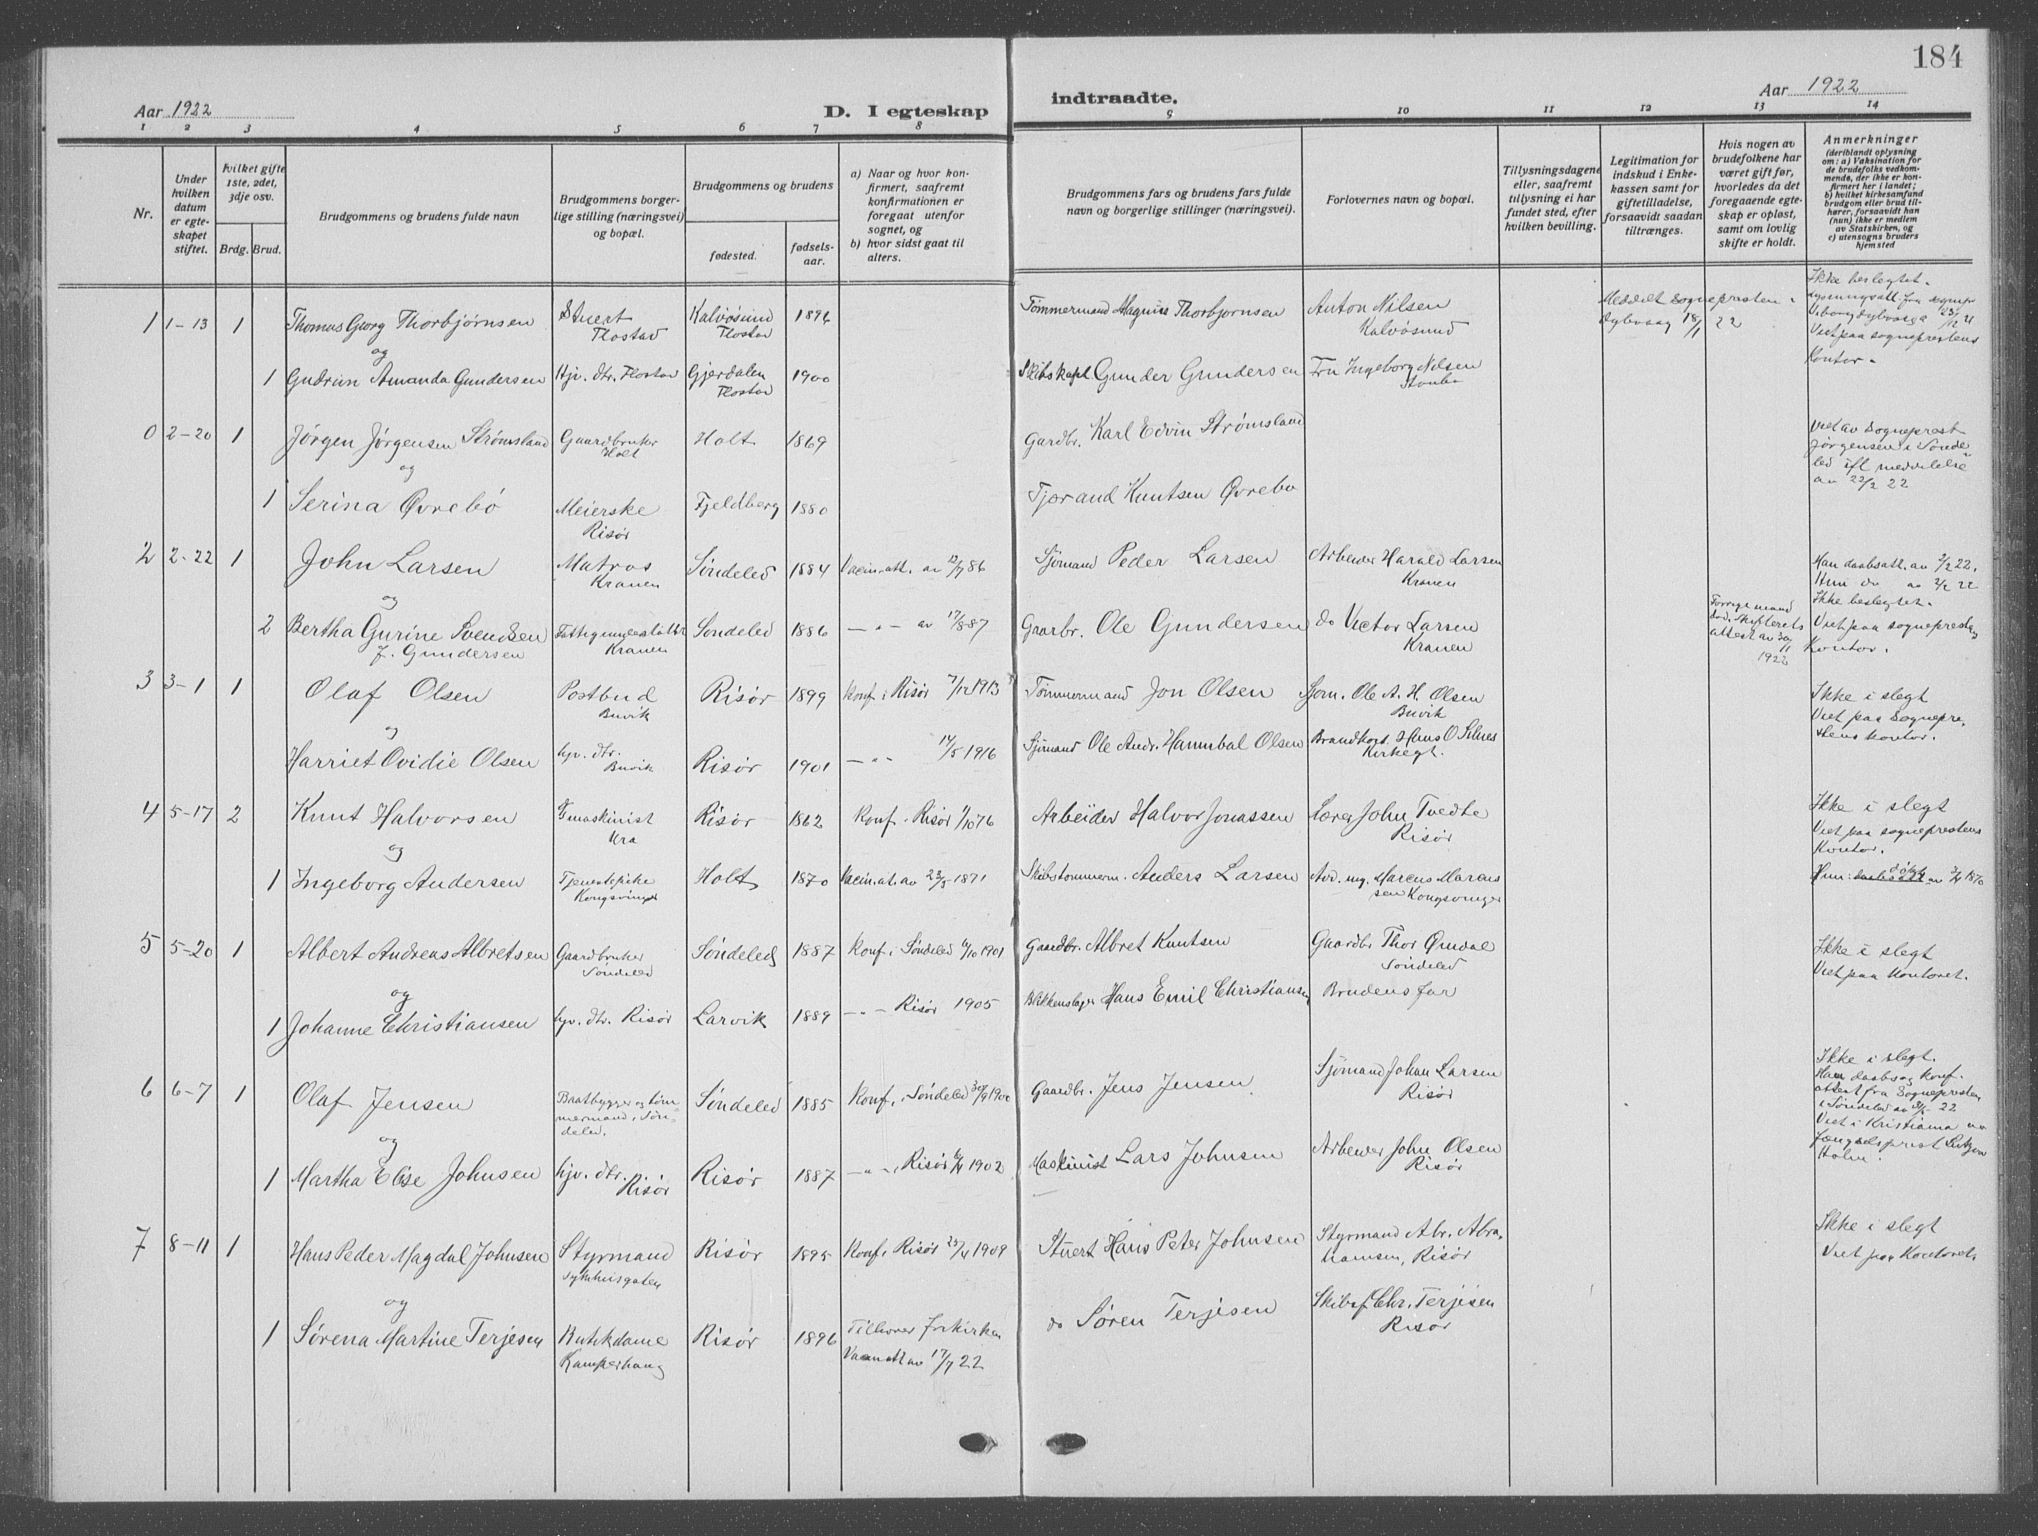 184
Aar 1922
D. I egteskap
indtraadte.
Aar 1922
1 2 3 4 5 6 7 8 9 10 11 12 13 14
Nr.
Under hvilken datum er egteskapet stiftet.
hvilket gifte 1ste, 2det, 3dje osv.
Brdg. Brud.
Brudgommens og brudens fulde navn
Brudgommens borgerlige stilling (næringsvei) og bopæl.
Brudgommens og brudens
fødested.
fødselsaar.
a) Naar og hvor konfirmert, saafremt konfirmationen er foregaat utenfor sognet, og
b) hvor sidst gaat til alters.
Brudgommens fars og brudens fars fulde navn og borgerlige stillinger (næringsvei).
Forlovernes navn og bopæl.
Tillysningsdagene eller, saafremt tillysning ei har fundet sted, efter hvilken bevilling.
Legitimation for indskud i Enkekassen samt for giftetilladelse, forsaavidt saadan tiltrænges.
Hvis nogen av brudefolkene har været gift før, hvorledes da det foregaaende egteskap er opløst, samt om lovlig skifte er holdt.
Anmerkninger
(deriblandt oplysning om: a) Vaksination for de brudefolks vedkommende, der ikke er konfirmert her i landet;
b) hvilket kirkesamfund brudgom eller brud tilhører, forsaavidt han (hun) ikke er medlem av Statskirken, og
c) utensogns bruders hjemsted
1 1-13 1 Thomas Georg Thorbjørnsen Stuert Flostad Kalvøsund Flostad 1896 Tømmermand Magnus Thorbjørnsen Anton Nilsen Kalvøsund Meddelt Sognepresten i Dybvaag 18/1 22 Ikke beslegtet. Viet paa sogneprestens Kontor.
og
1 Gudrun Amanda Gundersen Hjv. dtr. Flostad Gjerdalen Flostad 1900 Skibskapt. Gunder Gundersen Fru Ingeborg Nilsen
0 2-20 1 Jørgen Jørgensen Strømsland Gaardbruker Holt Holt 1869 Gardbr. Karl Edvin Strømsland Viet av Sogneprest Jørgensen i Søndeled ifl meddelelse av 22/2 22
og
1 Serina Øvrebø Meierske Risør Fjeldberg 1880 Tjerand Knutsen Øvrebø
2 2-22 1 John Larsen Matros Kranen Søndeled 1884 Vacin.att. av 12/7 86 Sjømand Peder Larsen Arbeider Harald Larsen Kranen Han daabsatt. av 2/2 22. Hun do av 2/2 22 Ikke beslegtet. Viet paa sogneprestens Kontor.
og
2 Bertha Gurine Svendsen f. Gundersen Kranen Søndeled 1886 —"— av 17/8 87 Gaardbr. Ole Gundersen do Victor Larsen Kranen Forrige mand død. Skifterets attest av 1922
3 3-1 1 Olaf Olsen Postbud Buvik Risør 1899 Konf. i Risør 7/12 1913 Tømmermand Jon Olsen Sjøm. Ole A. H. Olsen Buvik Ikke i slegt Viet paa Sogneprestens kontor.
og
Harriet Ovidie Olsen hjv. dtr. Buvik Risør 1901 —"— 14/5 1916 Sjømand Ole Andr. Hannibal Olsen Hans O Kirkegt.
4 5-17 2 Knut Halvorsen maskinist Ura Risør 1862 Konf. Risør 1/10 76 Arbeider Halvor Jonassen Lærer John Tvedte Risør Ikke i slegt Viet paa sogneprestens Kontor.
og
1 Ingeborg Andersen Tjenestepike Kongsvinger Holt 1870 Vacin.at. av 23/5 1871 Skibstømmerm. Anders Larsen Marcus Marcussen Kongsvinger Hun:
5 5-20 1 Albert Andreas Albretsen Gaardbruker Søndeled Søndeled 1887 Konf. i Søndeled 6/10 1901 Gaardbr. Albret Knutsen Gaardbr Thor Omdal Søndeled Ikke i slegt Viet paa kontoret.
og
1 Johanne Christiansen hjv. dtr. Risør Larvik 1889 —"— Risør 1905 Blikkenslager Hans Emil Christiansen Brudens far
6 6-7 1 Olaf Jensen Baatbygger og tømmermand, Søndeled. Søndeled 1885 Konf. i Søndeled 30/9 1900 Gaardbr. Jens Jensen Sjømand Johan Larsen Risør Ikke i slegt. Han daabs og konf. attest fra Sognepresten i Søndeled Viet i Kristiania av Fængselsprest Holm.
og
1 Martha Elise Johnsen hjv. dtr. Risør Risør 1887 —"— Risør 6/4 1902 Maskinist Lars Johnsen Arbeider John Olsen Risør
7 8-11 1 Hans Peder Magdal Johnsen Styrmand Sykehusgaten Risør 1895 Konf. i Risør 25/4 1909 Stuert Hans Peter Johnsen Styrmand Abr. Abrahamsen, Risør Ikke i slegt Viet paa Kontoret.
og
1 Sørena Martine Terjesen Butikdame Kamperhaug Risør 1896 Tilhører frikirken Vacin.att av 17/7 22 do Søren Terjesen Skibsf. Chr. Terjesen Risør